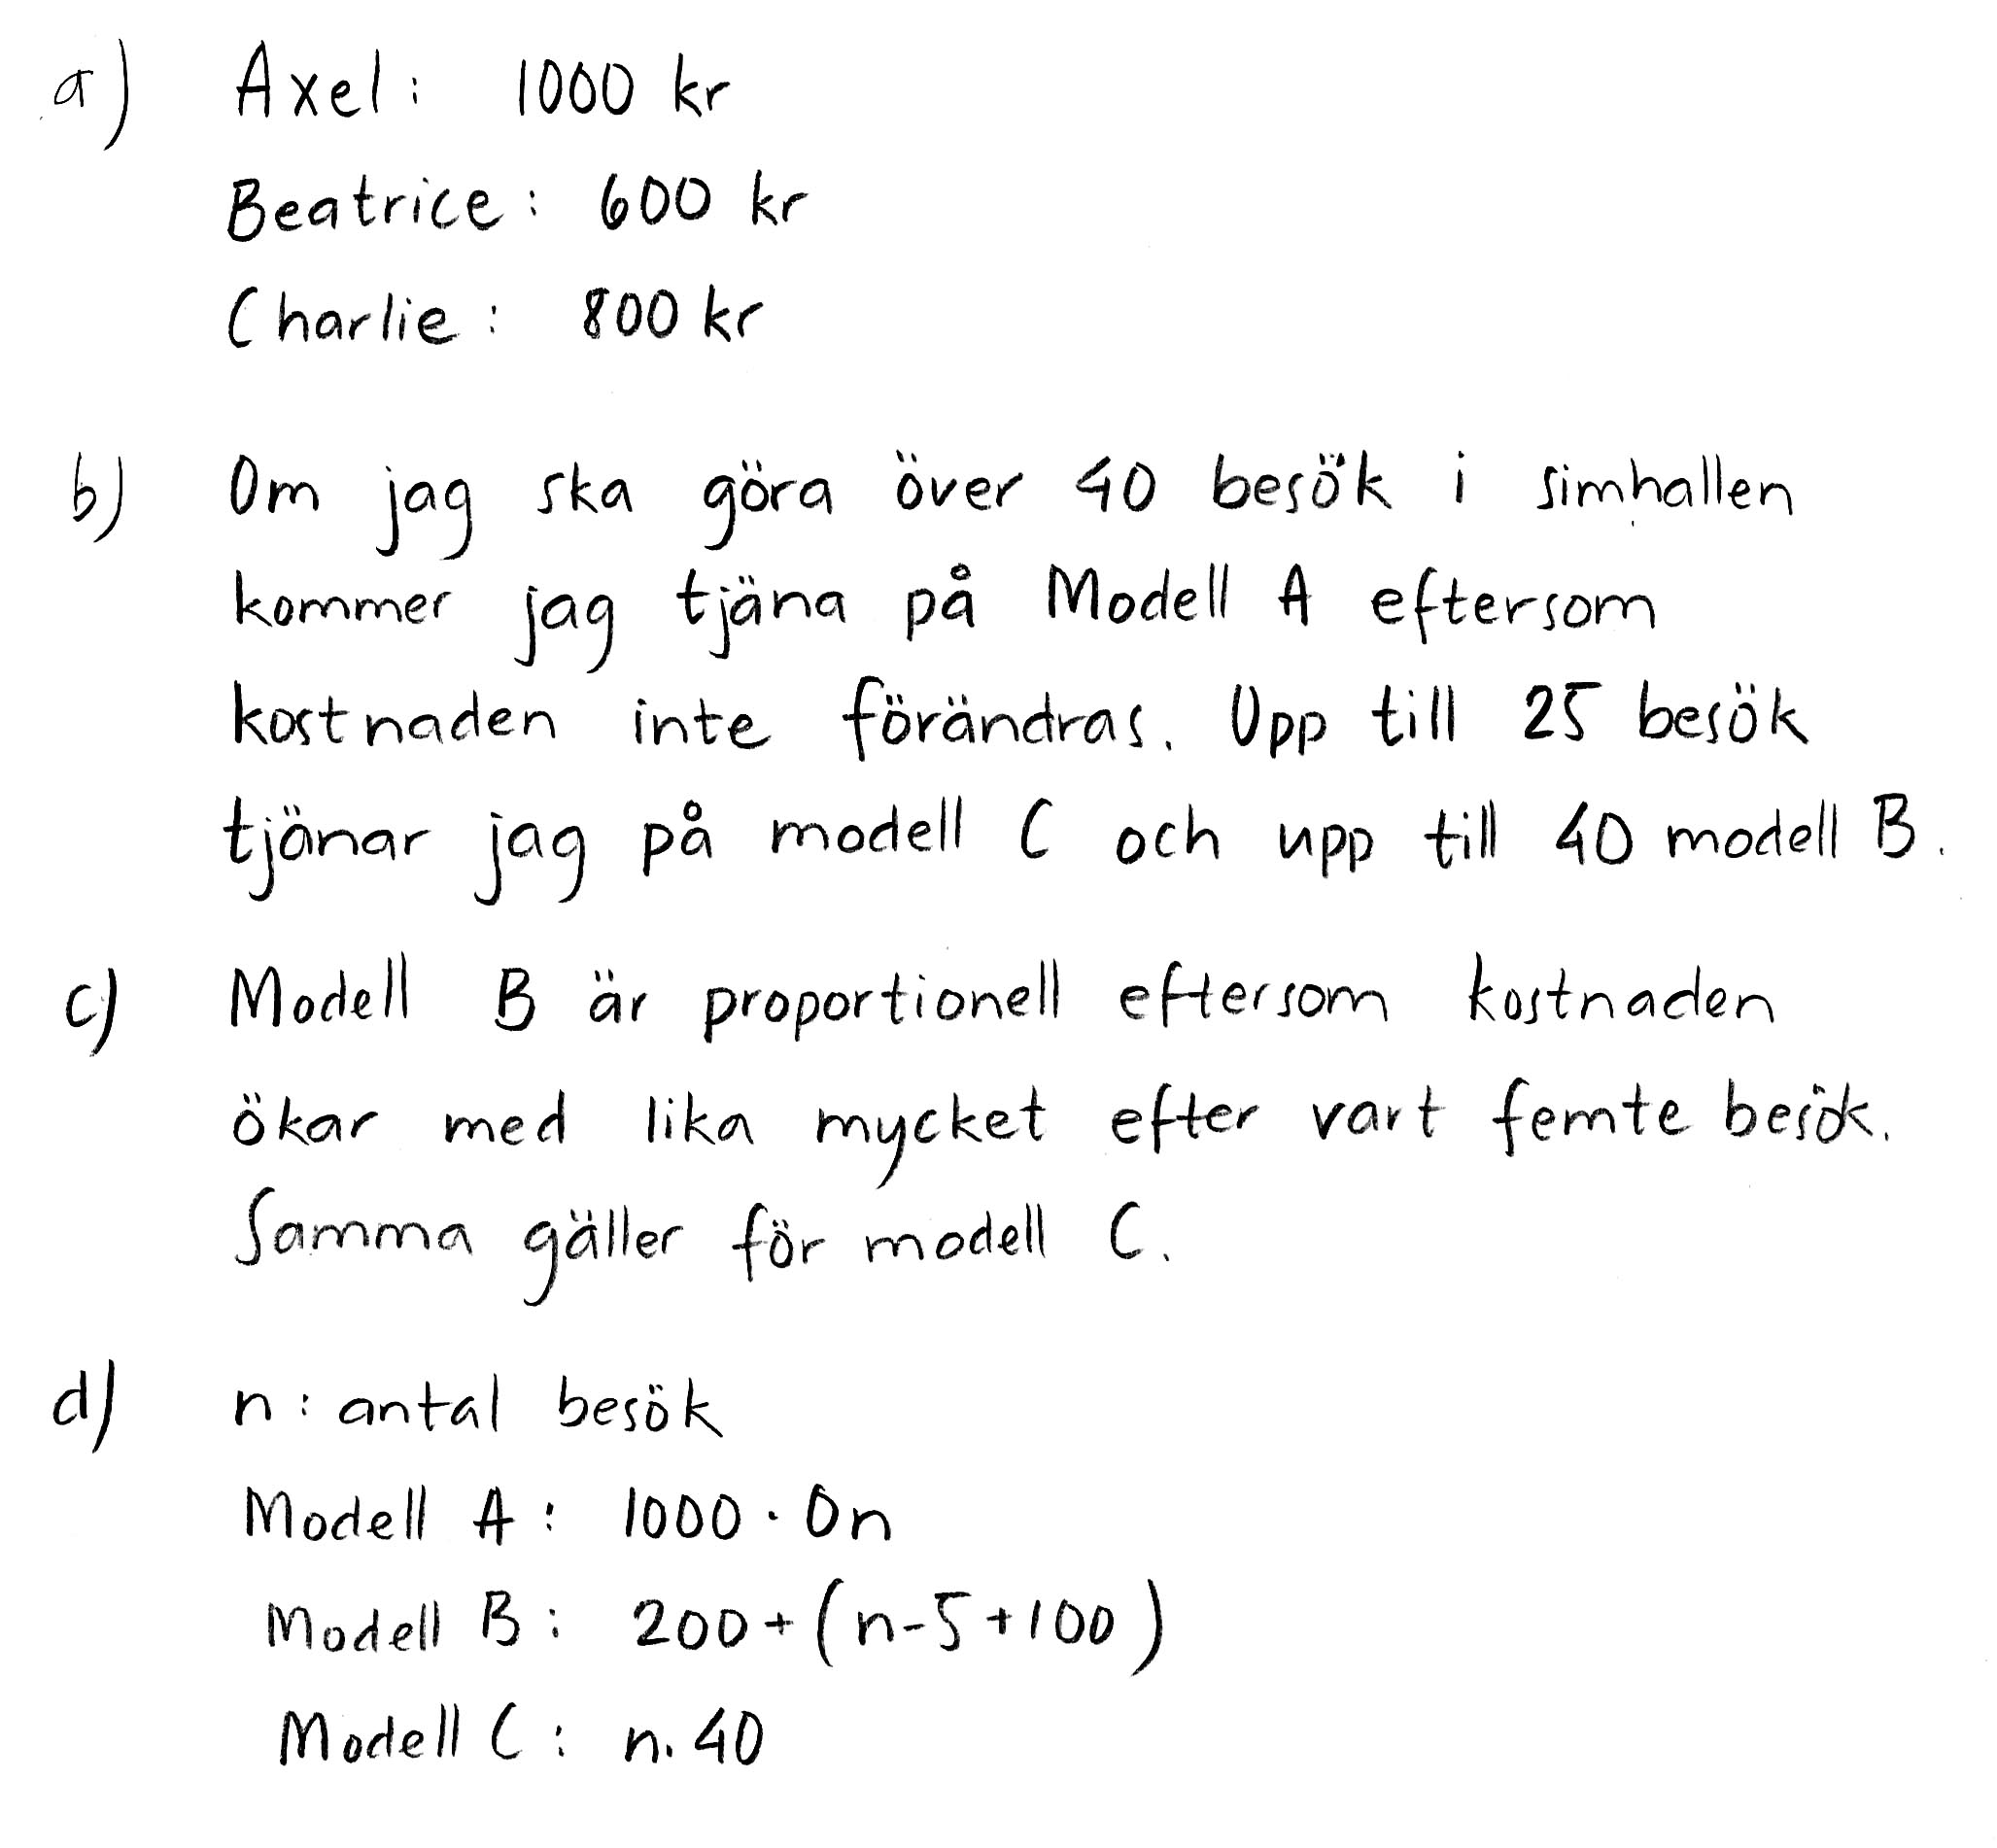 a) Axel: 1000 kr
Beatrice: 600 kr
Charlie: 800 kr
b) Om jag ska göra över 40 besök i simhallen
kommer jag tjäna på Modell A eftersom
kostnaden inte förändras. Upp till 25 besök
tjänar jag på modell C och upp till 40 modell B.
c) Modell B är proportionell eftersom kostnaden
ökar med lika mycket efter vart femte besök.
Samma gäller för modell C.
d) n: antal besök
Modell A: 1000 · 0n
Modell B: 200 + (n-5+100)
Modell C: n · 40